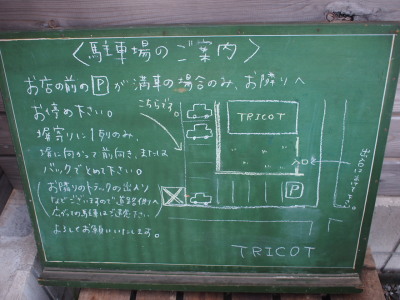 〈駐車場のご案内〉
お店の前のPが満車の場合のみ、お隣りへ
お停め下さい。
こちらです。
塀寄りに1列のみ、
塀に向かって前向き、または
バックでとめて下さい。
(お隣りのトラックの出入り
などございますので道路側への
駐車はご遠慮下さい)
よろしくお願いいたします。
TRICOT
入口
P
TRICOT